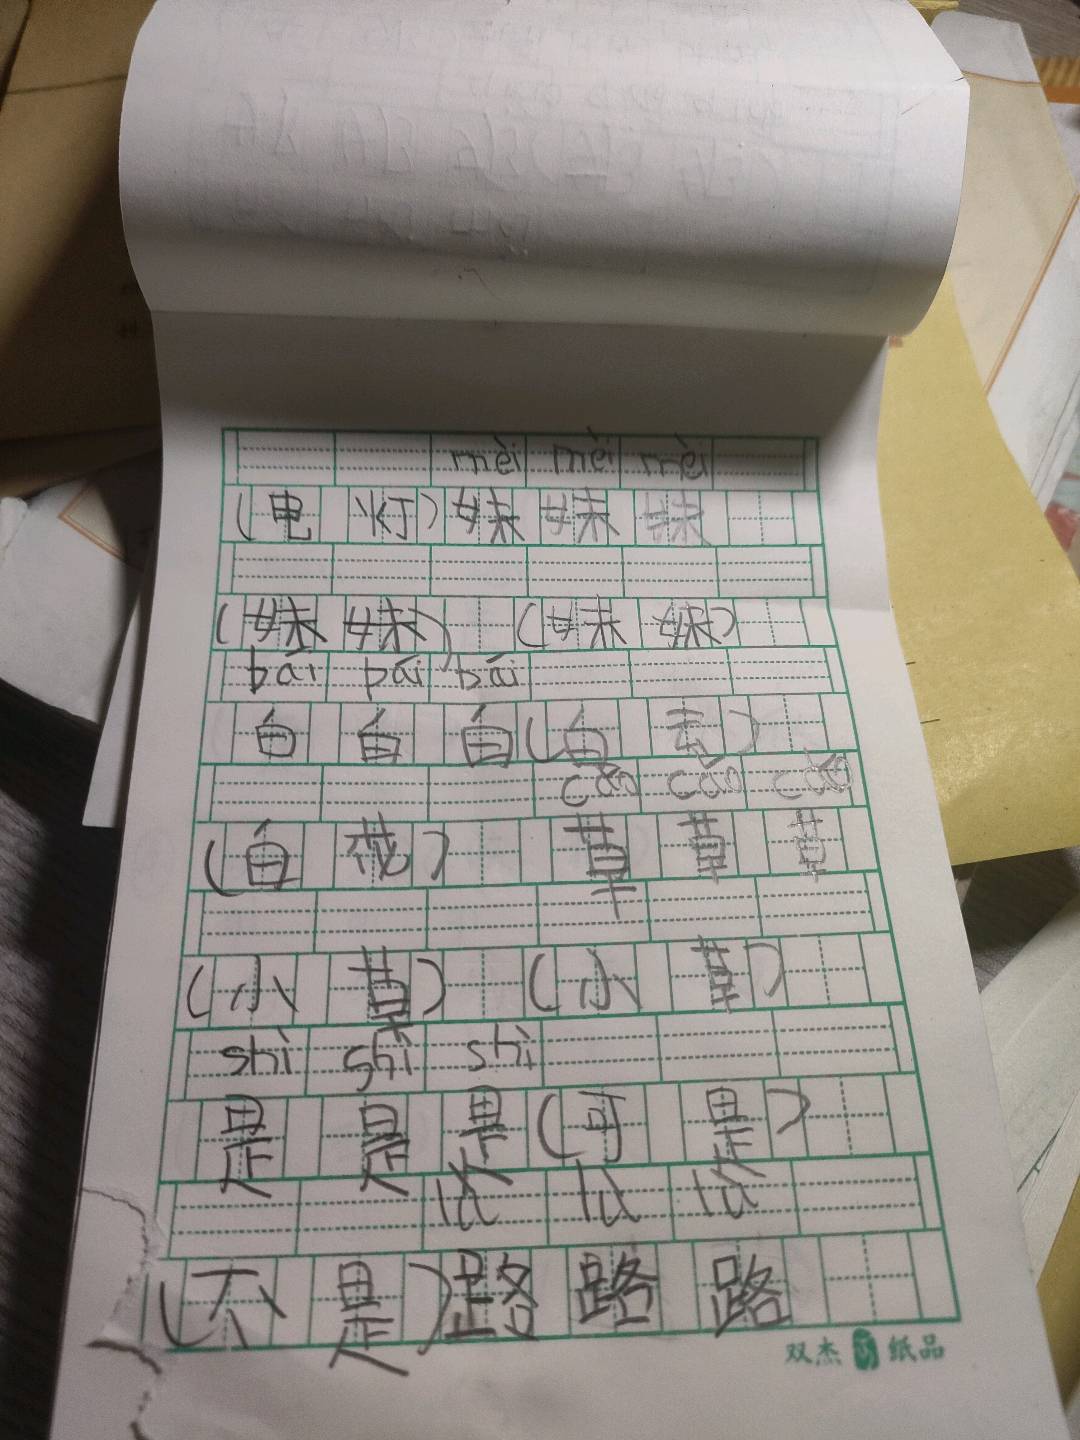 mèi mèi mèi
(电 灯) 妹 妹 妹
(妹 妹) (妹 妹)
bái bái bái
白 白 白 (白 云)
cǎo cǎo cǎo
(白 花) 草 草 草
(小 草) (小 草)
shì shì shì
是 是 是 (可 是)
lù lù lù
(不 是) 路 路 路
双杰 纸品